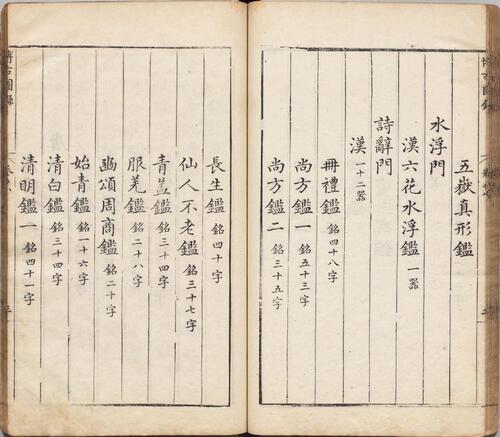 五嶽真形鑑
水浮門
漢六花水浮鑑 一器
詩辭門
漢 一十二器
冊禮鑑 銘四十八字
尚方鑑一 銘五十三字
尚方鑑二 銘三十五字
長生鑑 銘四十字
仙人不老鑑 銘三十七字
青盖鑑 銘三十四字
服羌鑑 銘二十八字
幽頌周商鑑 銘二十字
始青鑑 銘一十六字
清白鑑 銘三十四字
清明鑑一 銘四十一字
博古圖錄